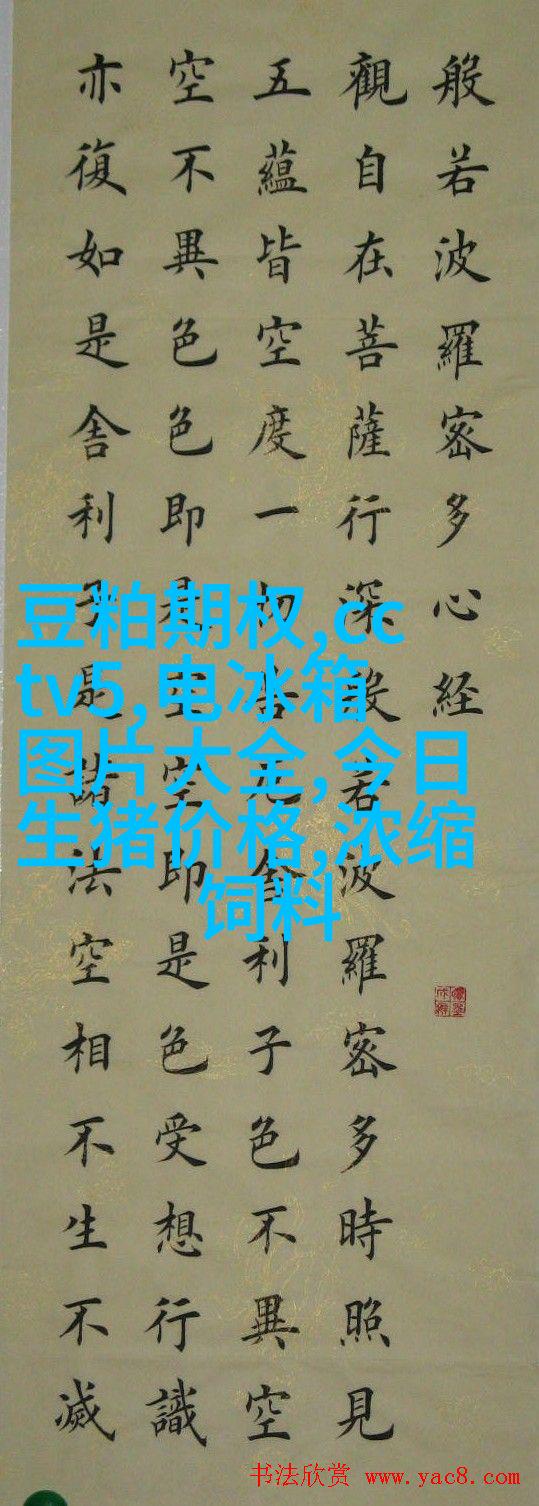 般若波羅密多心経
觀自在菩薩行深般若波羅密多時照見
五蘊皆空度一切苦厄舍利子色不異空
空不異色色即是空空即是色受想行識
亦復如是舍利子是諸法空相不生不滅
豆粕期权,cc
tv5,电冰箱
图片大全,今日
生猪价格,浓缩
饲料
书法欣赏 www.yac8.com